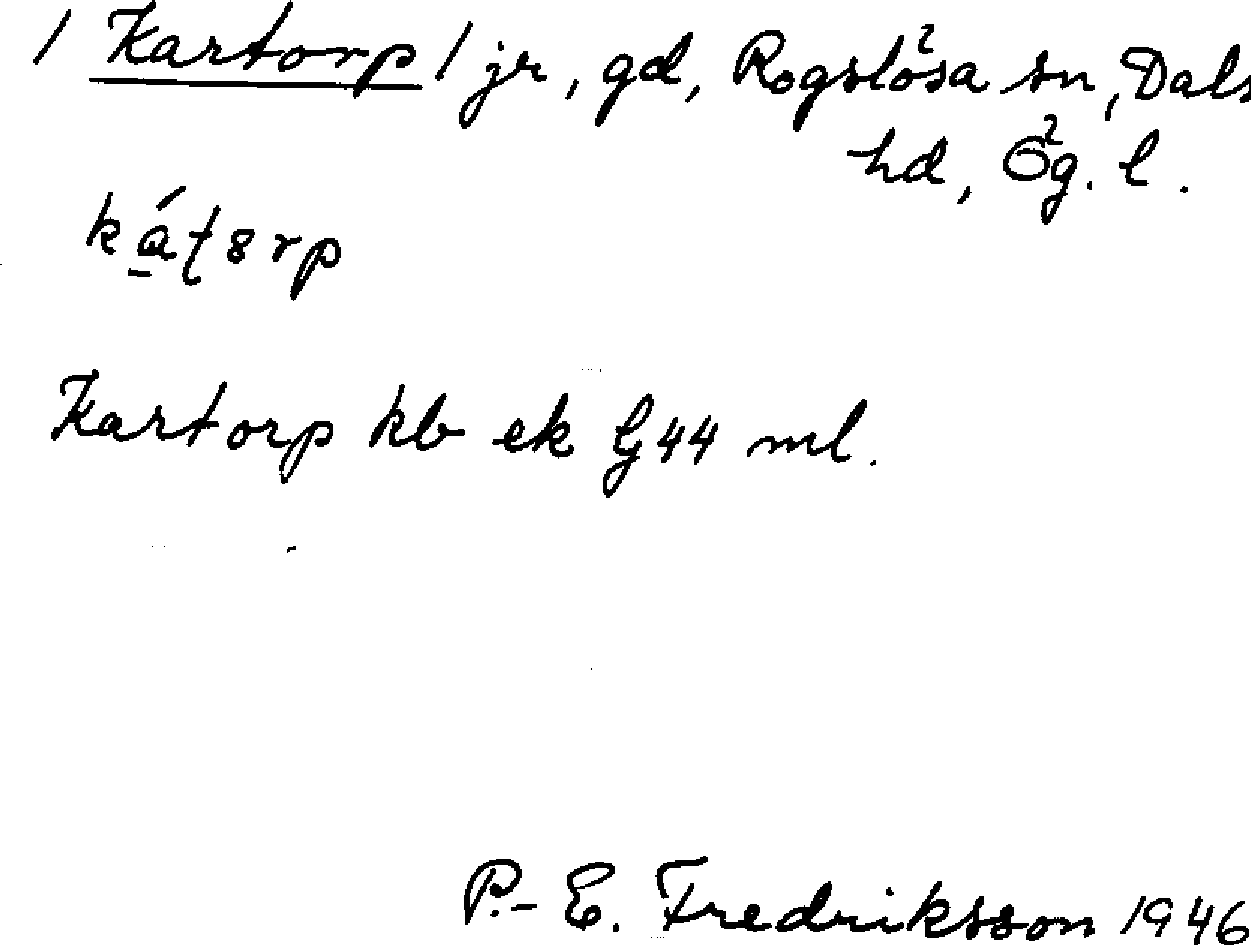 / Kartorp / jr, gd, Rogslösa sn, Dals
hd, Ög. l.
Kartorp kb ek G44 ml.
P.-E. Fredriksson 1946